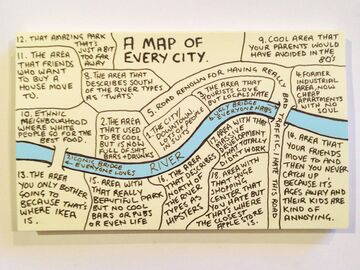 A MAP OF
EVERY CITY.
12. THAT AMAZING PARK
THAT'S
JUST A BIT
TOO FAR
AWAY
11. THE AREA
YOUR FRIENDS
WHO WANT
TO BUY A
HOUSE
MOVE
TO.
8. THE AREA THAT
DESCRIBES SOUTH
OF THE RIVER TYPES
AS 'TWATS'
9. COOL AREA THAT
YOUR PARENTS WOULD
HAVE AVOIDED IN THE
80'S
5. ROAD RENOWN FOR HAVING REALLY BAD TRAFFIC. I HATE THIS ROAD
3. THE AREA THAT
TOURISTS LOVE
BUT LOCALS HATE
4. FORMER
INDUSTRIAL
AREA, NOW
CHEAP
APARTMENTS
WITH NO
SOUL
10. ETHNIC
NEIGHBOURHOOD
WHERE WHITE
PEOPLE GO FOR
THE BEST
FOOD.
2. THE AREA
THAT USED
TO BE COOL
BUT IS NOW
FULL OF SHIT
BARS + DRUNKS
1. THE CITY
UGLY BRIDGE
EVERYONE HATES
ICONIC BRIDGE
EVERYONE LOVES
RIVER
AREA WITH
THE
DEVELOPMENT
THAT DIDN'T TOTALLY
WORK
13. THE AREA
YOU ONLY BOTHER
GOING TO
BECAUSE
THAT'S
WHERE IKEA
IS.
15. AREA WITH
THAT REALLY
BEAUTIFUL PARK
BUT NO COOL
BARS OR PUBS
OR EVEN LIFE
16. THE AREA
THAT DESCRIBES
NORTH OF THE
RIVER
TYPES
AS
HIPSTERS
18. AREA WITH
THAT HUGE
SHOPPING
CENTER THAT
YOU HATE BUT
THAT'S WHERE
THE CLOSEST
APPLE STORE
IS.
14. AREA
THAT YOUR
FRIENDS
MOVE TO AND
THEN YOU NEVER
CATCH UP
BECAUSE IT'S
AGES AWAY AND
THEIR KIDS ARE
KIND OF
ANNOYING.